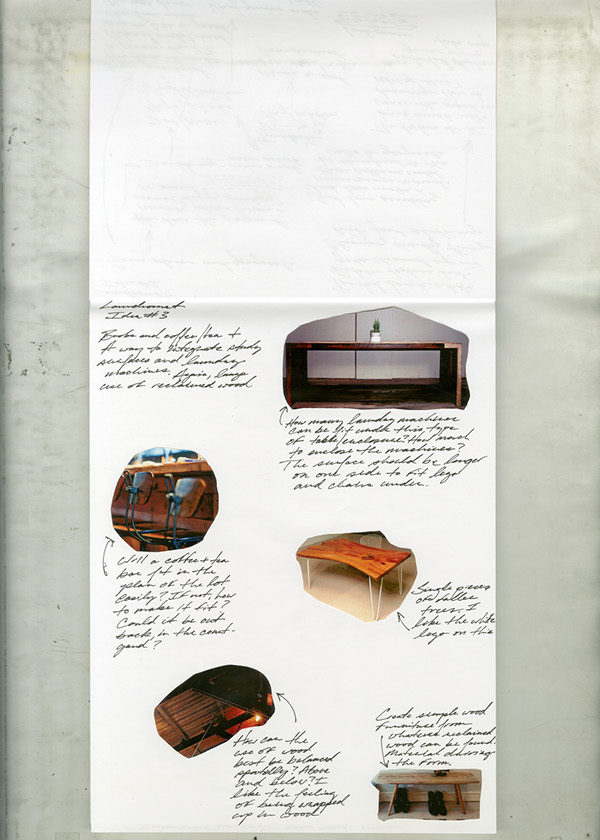 Laundromat
Idea #3
Books and coffee/tea +
A way to integrate study
surfaces and laundry
machines. Again, large
use of reclaimed wood
How many laundry machines
can be fit under this type
of table/enclosure? How much
to enclose the machines?
The surface should be longer
on one side to fit legs
and chairs under.
Will a coffee + tea
bar fit in the
plan of the
easily? If not, how
to make it fit?
Could it be out
back, in the court-
yard?
Single pieces
of fallen
trees. I
like the white
legs on this
How can the
use of wood
best be balanced
spatially? Above
and below? I
like the feeling
of being wrapped
up in wood
Create simple wood
furniture from
whatever reclaimed
wood can be found.
Material driving
the form.